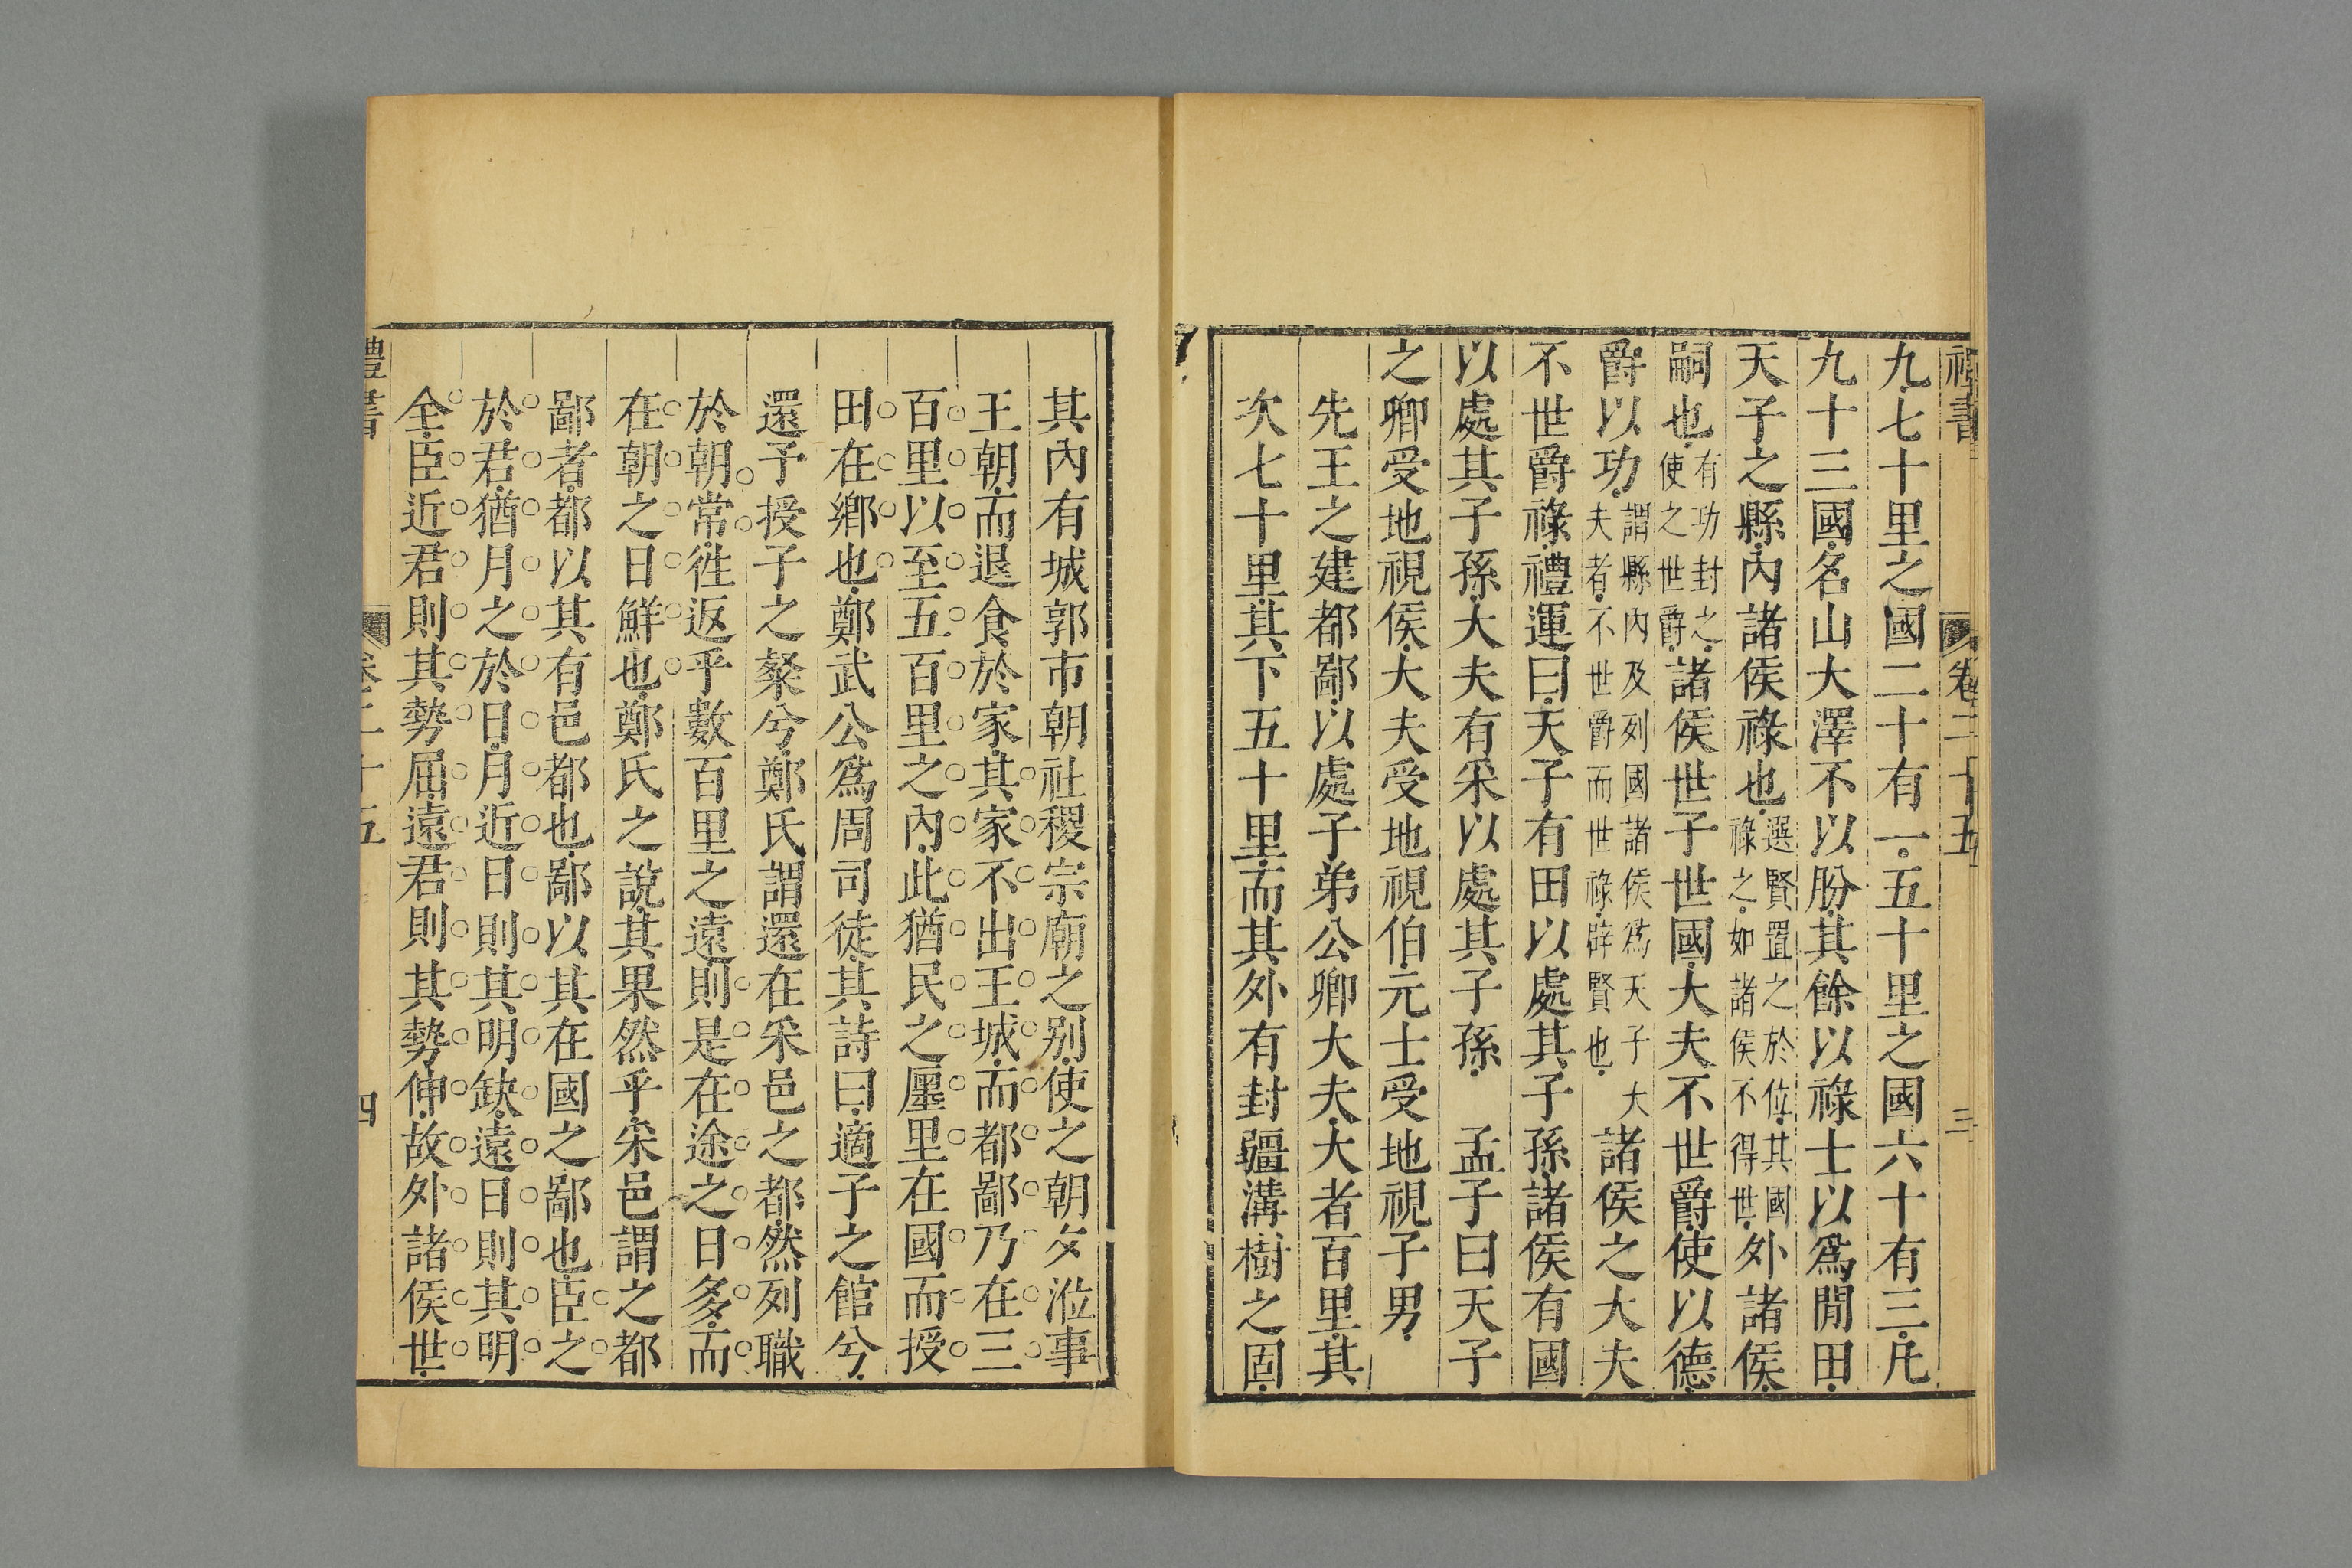 禮書 卷二十五 三
九七十里之國二十有一五十里之國六十有三凡
九十三國名山大澤不以朌其餘以祿士以爲閒田
天子之縣內諸侯祿也選賢置之於位其國祿之如諸侯不得世外諸侯
嗣也有功封之使之世爵諸侯世子世國大夫不世爵使以德
爵以功謂縣內及列國諸侯爲天子大夫者不世爵而世祿辟賢也諸侯之大夫
不世爵祿禮運曰天子有田以處其子孫諸侯有國
以處其子孫大夫有采以處其子孫 孟子曰天子
之卿受地視侯大夫受地視伯元士受地視子男
先王之建都鄙以處子弟公卿大夫大者百里其
次七十里其下五十里而其外有封疆溝樹之固
其內有城郭市朝社稷宗廟之别使之朝夕涖事
王朝而退食於家其家不出王城而都鄙乃在三
百里以至五百里之內此猶民之廛里在國而授
田在鄉也鄭武公爲周司徒其詩曰適子之館兮
還予授子之粲兮鄭氏謂還在采邑之都然列職
於朝常徃返乎數百里之遠則是在途之日多而
在朝之日鮮也鄭氏之說其果然乎采邑謂之都
鄙者都以其有邑都也鄙以其在國之鄙也臣之
於君猶月之於日月近日則其明缺遠日則其明
全臣近君則其勢屈遠君則其勢伸故外諸侯世
禮書 卷二十五 四